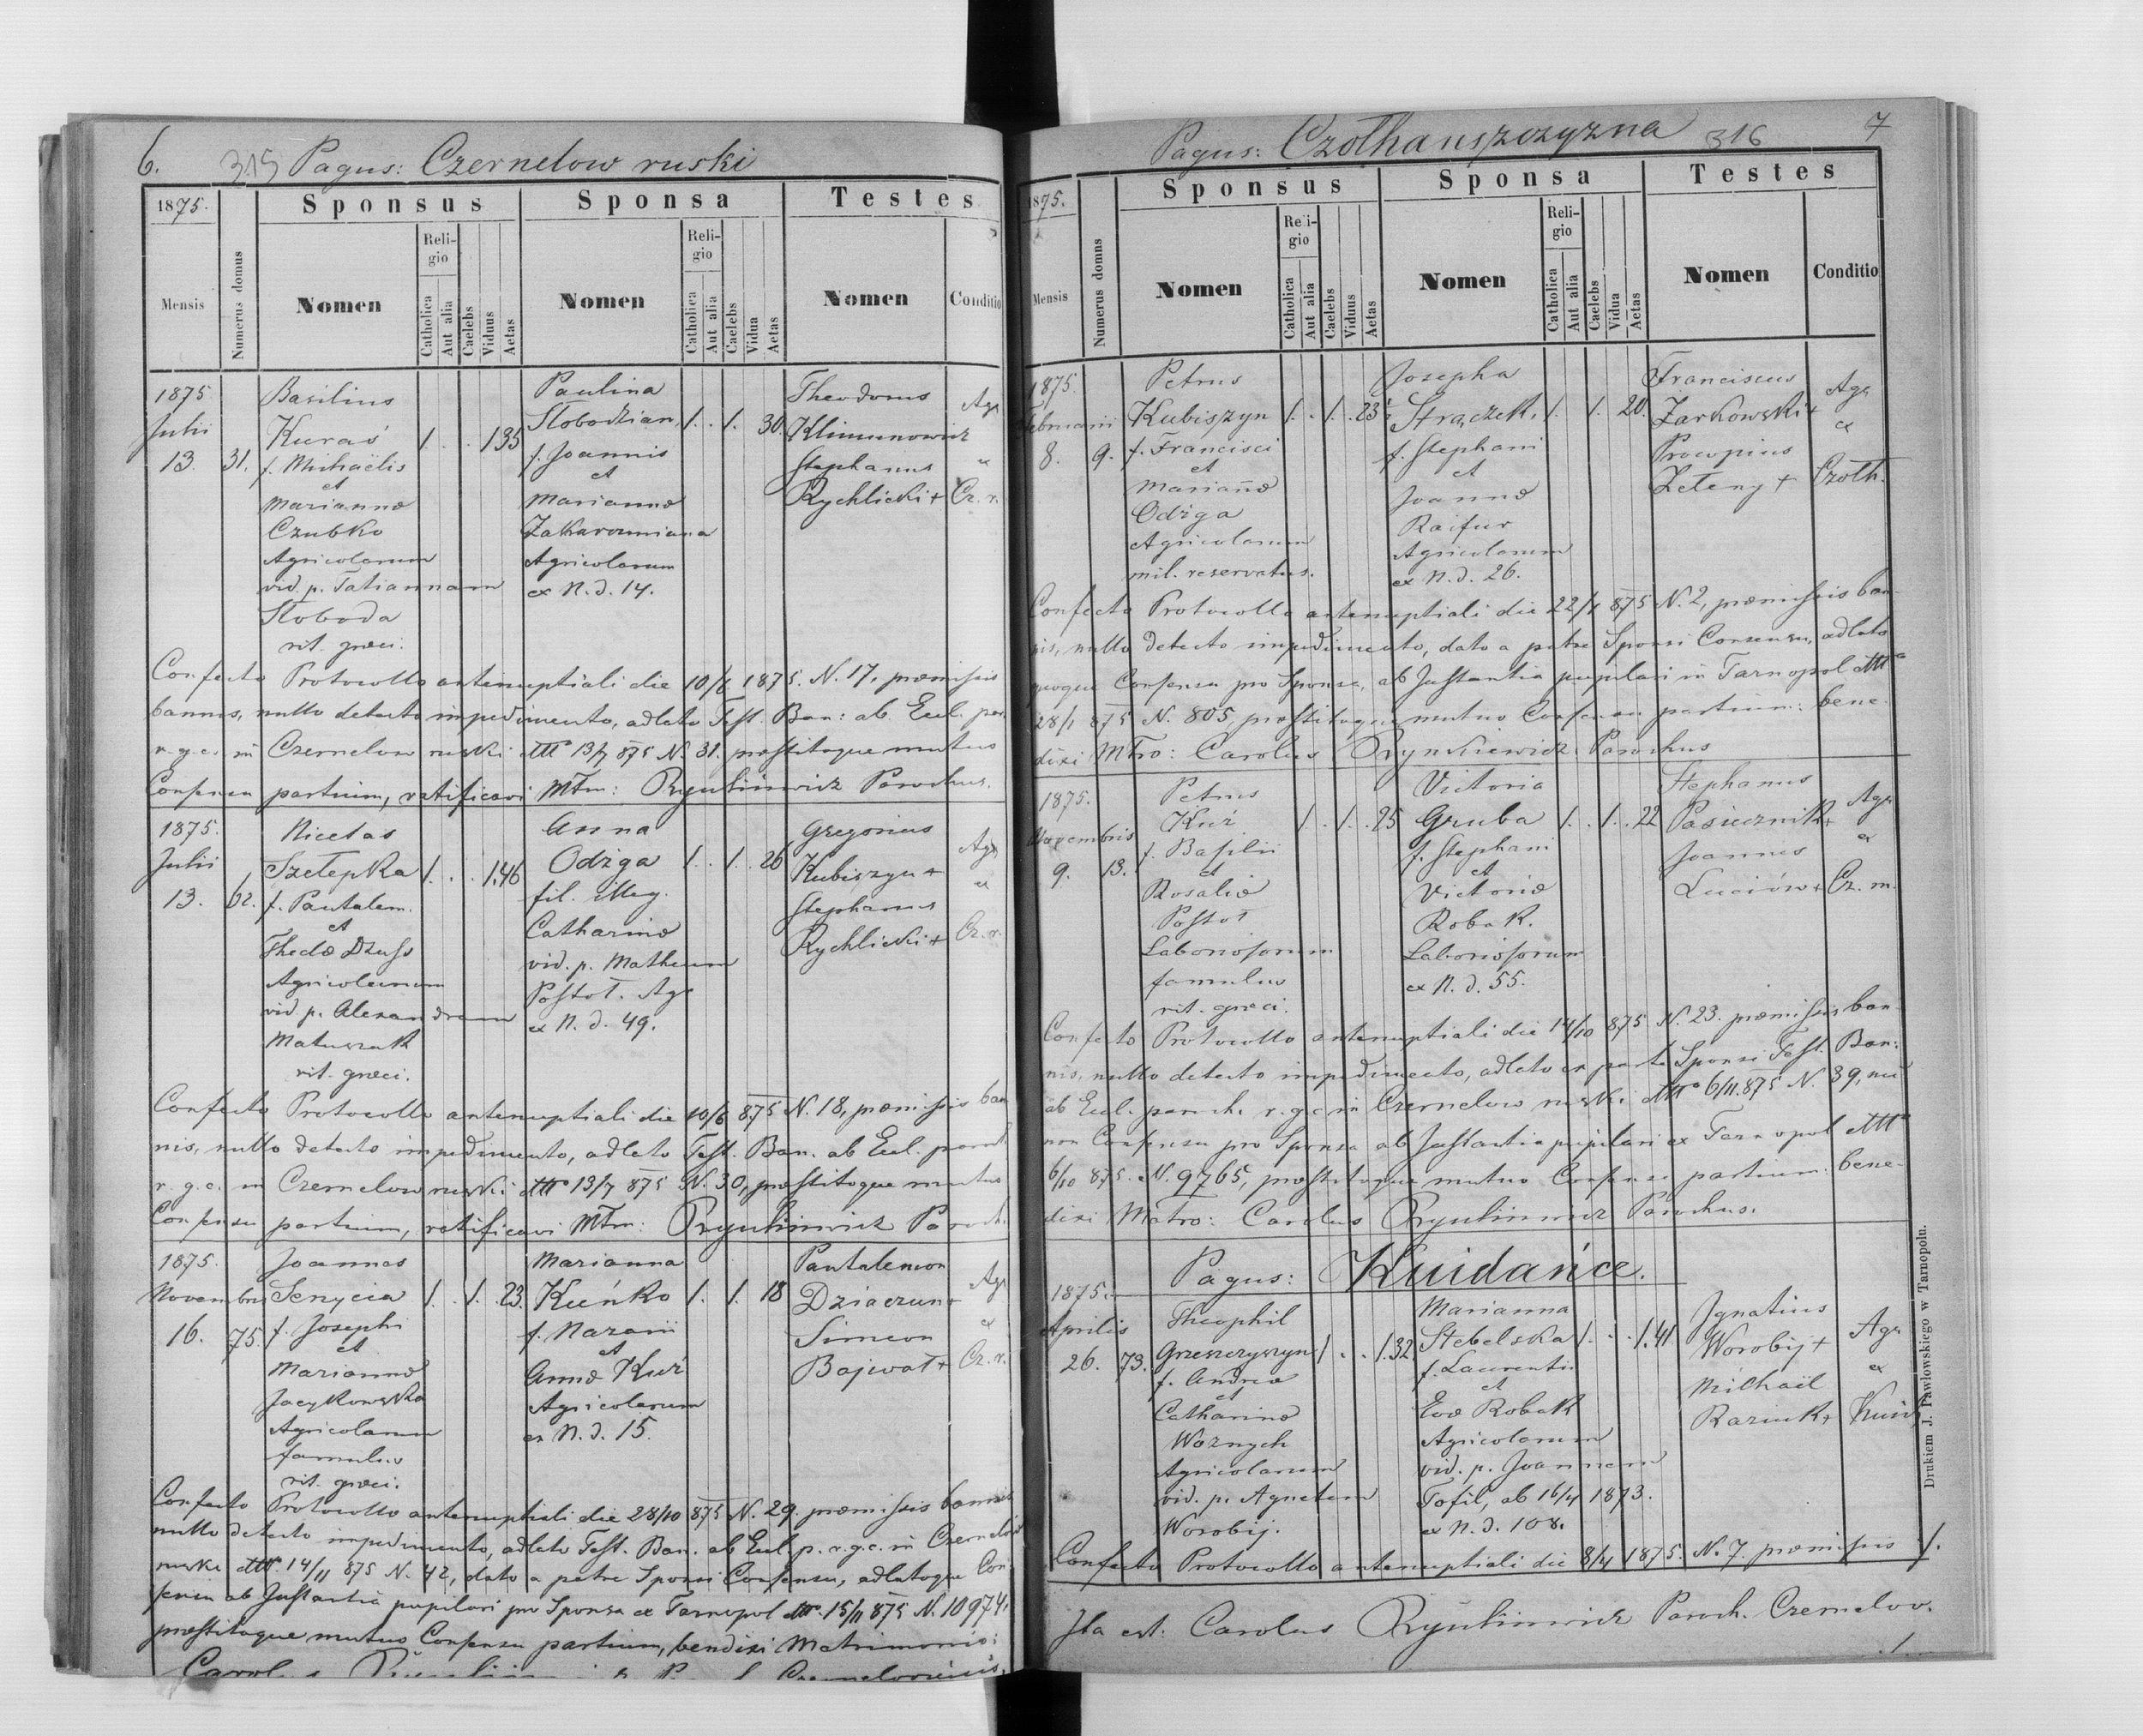 6.
315 Pagus: Czernelow ruski
1875.
Sponsus
Sponsa
Testes
Mensis
Numerus domus
Nomen
Religio
Catholica
Aut alia
Caelebs
Viduus
Aetas
Nomen
Religio
Catholica
Aut alia
Caelebs
Vidua
Aetas
Nomen
Conditio
1875
Julii
13.
31.
Basilius
Kuraś
f. Michaëlis
et
Mariannæ
Czubko
Agricolarum
vid. p. Tatiannam
Słoboda
rit. græci.
1. . . 1. 35
Paulina
Słobodzian
f. Joannis
et
Mariannæ
Agricolarum
ex N. d. 14.
1. . 1. 30.
Theodorus
Klimunowicz
Stephanus
Rychlicki +
Agr
ex
Cz. r.
Confecto Protocollo antenuptiali die 10/6 1875. N. 17, præmissis
bannis, nullo detecto impedimento, adlato Test. Ban: ab Eccl. par.
r. g. c. in Czernelow ruski dtto 13/7 875 N. 31. præstitoque mutuo
Consensu partium, ratificavi Mtm: Parochus.
1875.
Julii
13.
62.
Nicetas
Szełepka
f. Pantalem.
et
Agricolarum
vid. p. Alexandram
Matuszak
rit. græci.
1. . . 1. 46
Anna
Odżga
fil. illeg.
Catharinæ
vid. p. Matheum
Postoł. Agr
ex N. d. 49.
1. . 1. 26
Gregorius
Kubiszyn +
Stephanus
Rychlicki +
Agr
ex
Cz. r.
Confecto Protocollo antenuptiali die 10/6 875 N. 18, præmissis ban
nis, nullo detecto impedimento, adlato Test. Ban. ab Eccl. paroch
r. g. c. in Czernelow ruski dtto 13/7 875 N. 30, præstitoque mutuo
Consensu partium, ratificavi Mtm: Paroch.
1875.
Novembris
16.
75.
Joannes
Senycia
f. Josephi
et
Mariannæ
Jacykowska
Agricolarum
famulus
rit. græci.
1. . 1. 23.
Marianna
Kuńko
f. Nazarii
et
Annæ Kuź
Agricolarum
ex N. d. 15.
1. 1. 18
Pantalemon
Dziaczun +
Simeon
Bojwał +
Agr
ex
Cz. r.
Confecto Protocollo antenuptiali die 28/10 875 N. 29. præmissis bannis
nullo detecto impedimento, adlato Test. Ban. ab Eccl. p. r. g. c. in Czernelow
ruski dtto. 14/11 875 N. 42, dato a patre Sponsi Consensu, adlatoque Con
sensu ab Instantia pupilari pro Sponsa ex Tarnopol dtto. 15/11 875 N. 10974,
præstitoque mutuo Consensu partium, benedixi Matrimonio:
7
Pagus: Czołhanszczyzna 316
1875.
Sponsus
Sponsa
Testes
Mensis
Numerus domus
Nomen
Religio
Catholica
Aut alia
Caelebs
Viduus
Aetas
Nomen
Religio
Catholica
Aut alia
Caelebs
Vidua
Aetas
Nomen
Conditio
1875.
Februarii
8.
9.
Petrus
Kubiszyn
f. Francisci
et
Mariannæ
Odżga
Agricolarum
mil. reservatus.
1. . 1. . 23½
Josepha
Strączek.
f. Stephani
et
Joannæ
Raifur
Agricolarum
ex N. d. 26.
1. 1. 20.
Franciscus
Żarkowski +
Procopius
Zeteny +
Agr
ex
Czołh.
Confecto Protocollo antenuptiali die 22/1 875 N. 2, præmissis ban-
nis, nullo detecto impedimento, dato a patre Sponsi Consensu, adlato
quoque Consensu pro Sponsa, ab Instantia pupilari in Tarnopol dtto
28/1 875 N. 805, præstitoque mutuo Consensu partium: bene-
dixi Mtro: Carolus Parochus
1875.
Novembris
9.
13.
Petrus
Kuź
f. Basilii
et
Rosaliæ
Postoł
Laboriosorum
famulus
rit. græci.
1. . 1. . 25
Victoria
Gruba
f. Stephani
et
Victoriæ
Robak.
Laboriosorum
ex N. d. 55.
1. . 1. . 22
Stephanus
Pasiecznik +
Joannes
Luciów +
Agr
ex
Cz. m.
Confecto Protocollo antenuptiali die 14/10 875 N. 23. præmissis ban-
nis, nullo detecto impedimento, adlato ex parte Sponsi Test. Ban:
ab Eccl. paroch. r. g. c. in Czernelow ruski dtto 6/11. 875 N. 39, nec
non Consensu pro Sponsa ab Instantia pupilari ex Tarnopol dtto
6/10 875. N. 9765, præstitoque mutuo Consensu partium: bene-
dixi Matro: Carolus Parochus.
Pagus: Kuidańce.
1875.
Aprilis
26.
73.
Theophil
Grzeszczyszyn
f. Andreæ
et
Catharinæ
Woznych
Agricolarum
vid. p. Agnetem
Worobij.
1 . . 1. 32.
Marianna
Stebelska
f. Laurentii
et
Evæ Robak
Agricolarum
vid. p. Joannem
Tofil, ab 16/4 1873.
ex N. d. 108.
1. . . 1. 41
Ignatius
Worobij +
Michaël
Raziuk +
Agr
ex
Kuid
Confecto Protocollo antenuptiali die 8/4 1875. N. 7. præmissis ./.
Ita est: Carolus Paroch. Czernelov.
Drukiem J. Pawłowskiego w Tarnopolu.